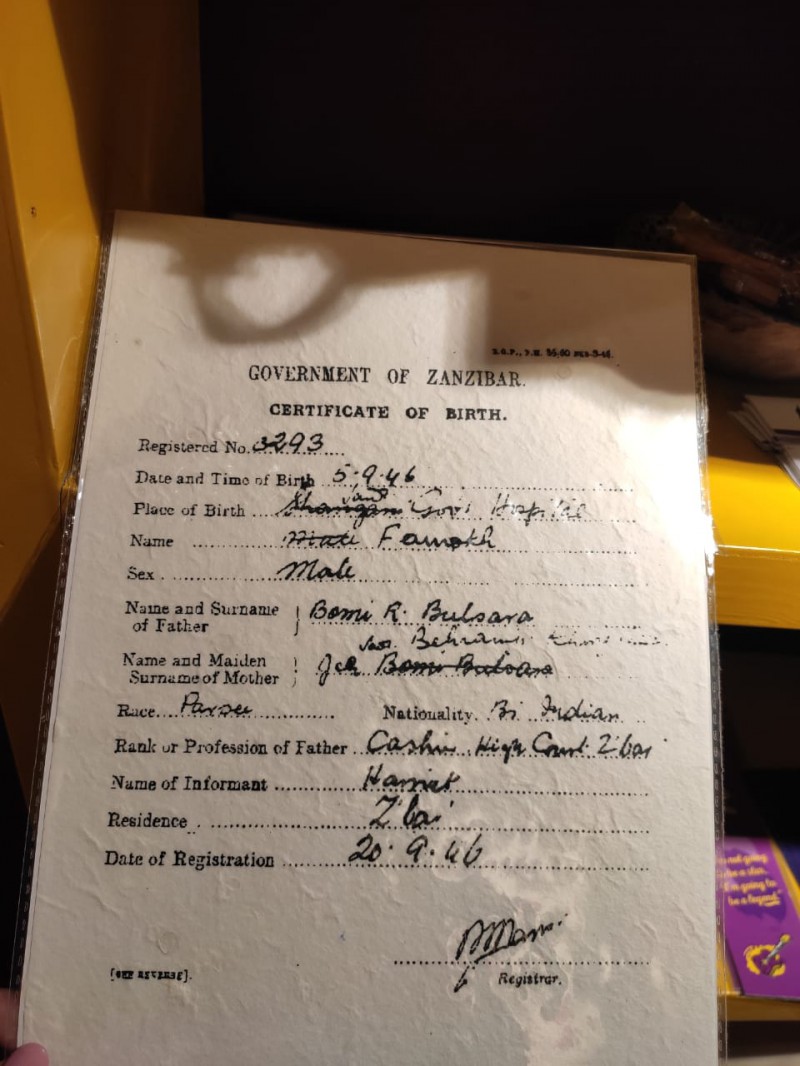 GOVERNMENT OF ZANZIBAR.
CERTIFICATE OF BIRTH.
Registered No. 3293
Date and Time of Birth 5.9.46
Place of Birth Shangani Govt Hospital
Name Male Farrokh
Sex Male
Name and Surname of Father Bomi R. Bulsara
Name and Maiden Surname of Mother Jer Bomi Bulsara
Race Parsee Nationality Br Indian
Rank or Profession of Father Cashier High Court Z'bar
Name of Informant
Residence Z'bar
Date of Registration 20.9.46
Registrar.
[SEE REVERSE].
be a star.
I'm going to
be a legend"